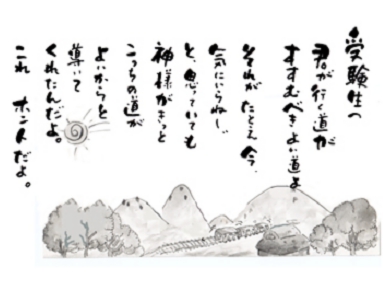 受験生へ
君が行く道が
すすむべきよい道よ
それが たとえ 今、
気にいらねぃ
と、思っていても
神様がきっと
こっちの道が
よいからと
導いて
くれたんだよ。
これ ホントだよ。